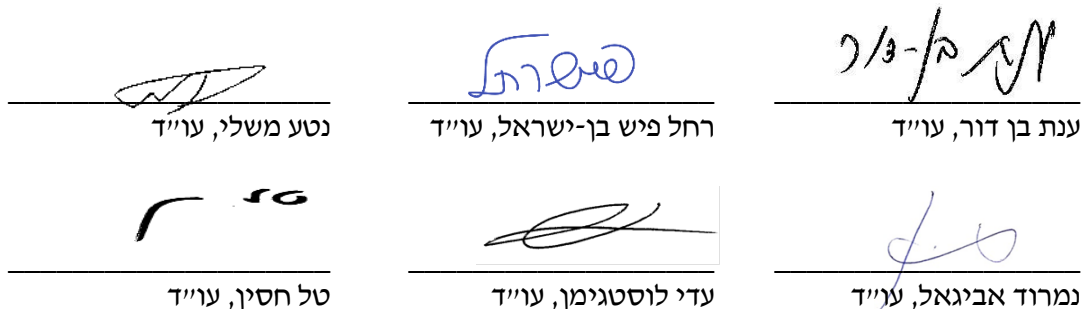 ענת בן-דור
ענת בן דור, עו״ד רחל פיש בן-ישראל, עו״ד נטע משלי, עו״ד
נמרוד אביגאל, עו״ד עדי לוסטיגמן, עו״ד טל חסין, עו״ד